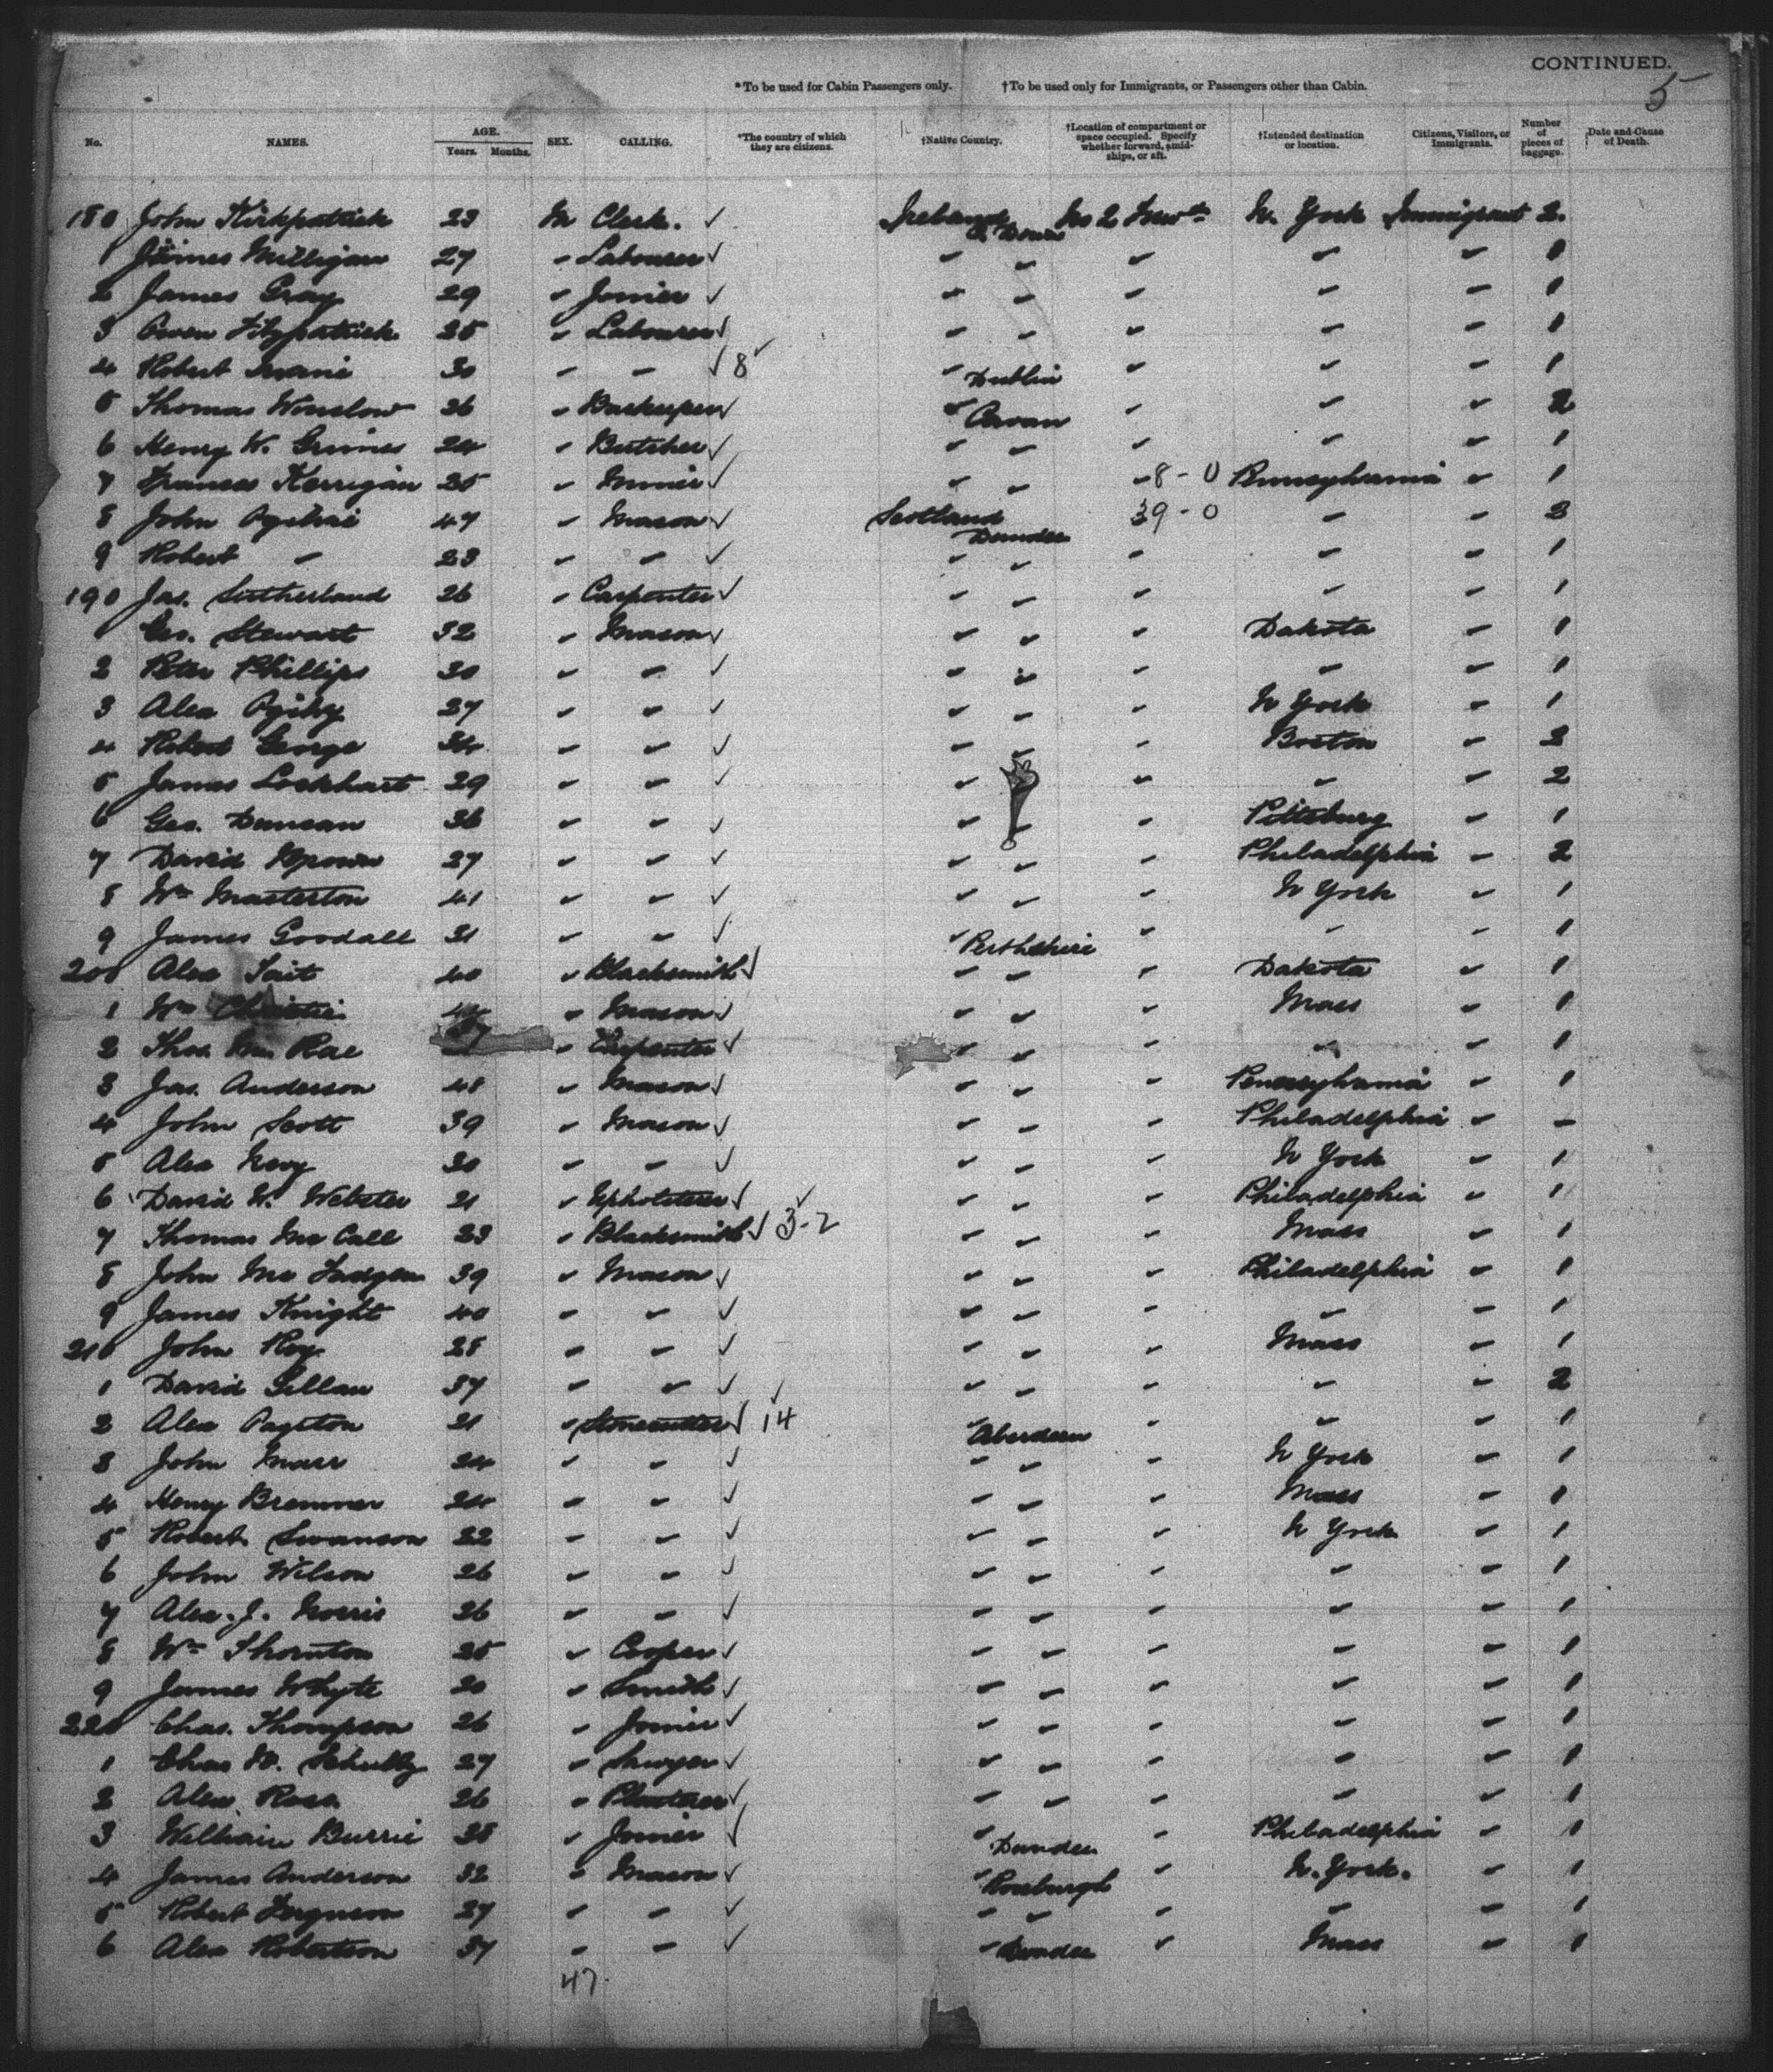 CONTINUED.
5
*To be used for Cabin Passengers only. †To be used only for Immigrants, or Passengers other than Cabin.
No. NAMES. AGE. Years. Months. SEX. CALLING. *The country of which they are citizens. †Native Country. †Location of compartment or space occupied. Specify whether forward, amidships, or aft. †Intended destination or location. Citizens, Visitors, or Immigrants. Number of pieces of baggage. Date and Cause of Death.
180 John Kirkpatrick 23 M Clerk. ✓ Ireland Co Down No 2 N. York Immigrant 2.
1 James Milligan 27 " Labourer ✓ " " " " " 1
2 James Gray 29 " Joiner ✓ " " " " " 1
3 Owen Fitzpatrick 25 " Labourer ✓ " " " " " 1
4 Robert 30 " " ✓ 8 ✓ " Dublin " " " 1
5 Thomas Winslow 26 " Barkeeper ✓ " Cavan " " " 2
6 Henry W. Grimes 24 " Butcher ✓ " " " " " 1
7 Frances Kerrigan 25 " Miner ✓ " " " 8-0 Pennsylvania " 1
8 John Ogilvie 47 " Mason ✓ Scotland Dundee 39-0 " " 2
9 Robert " 23 " " ✓ " " " " " 1
190 Jas. Sutherland 26 " Carpenter ✓ " " " " " 1
1 Geo. Stewart 32 " Mason ✓ " " " Dakota " 1
2 Peter Phillips 30 " " ✓ " " " " " 1
3 Alex Ogilvy 27 " " ✓ " " " N York " 1
4 Robert George 34 " " ✓ " " " Boston " 2
5 James Lockhart 29 " " ✓ " " " " " 2
6 Geo. Duncan 36 " " ✓ " " " Pittsburg " 1
7 David Brown 27 " " ✓ " " " Philadelphia " 2
8 Wm Masterton 41 " " ✓ " " " N York " 1
9 James Goodall 31 " " ✓ " Perthshire " " " 1
200 Alex Tait 40 " Blacksmith ✓ " " " Dakota " 1
1 Wm Christie 44 " Mason ✓ " " " Mass " 1
2 Thos. Mc Rae " Carpenter ✓ " " " " " 1
3 Jas. Anderson 48 " Mason ✓ " " " Pennsylvania " 1
4 John Scott 39 " Mason ✓ " " " Philadelphia " –
5 Alex 30 " " ✓ " " " N York " 1
6 David W. Webster 21 " Upholsterer ✓ " " " Philadelphia " 1
7 Thomas Mc Call 23 " Blacksmith ✓ 3-2 ✓ " " " Mass " 1
8 John Mc Fadgen 39 " Mason ✓ " " " Philadelphia " 1
9 James Knight 40 " " ✓ " " " " " 1
210 John Roy 28 " " ✓ " " " Mass " 1
1 David Gellan 37 " " ✓ " " " " " 2
2 Alex Payston 21 " Stonecutter ✓ 14 ✓ " Aberdeen " " " 1
3 John Marr 24 " " ✓ " " " N York " 1
4 Henry Bremner 24 " " ✓ " " " Mass " 1
5 Robert Swanson 22 " " ✓ " " " N York " 1
6 John Wilson 26 " " ✓ " " " " " 1
7 Alex. J. Norrie 26 " " ✓ " " " " " 1
8 Wm Thornton 25 " Cooper ✓ " " " " " 1
9 James Whyte 20 " Smith ✓ " " " " " 1
220 Chas. Thompson 26 " Joiner ✓ " " " " " 1
1 Chas W. Schultz 27 " Sawyer ✓ " " " " " 1
2 Alex Ross 26 " Plasterer ✓ " " " " " 1
3 William Burrie 38 " Joiner ✓ " Dundee " Philadelphia " 1
4 James Anderson 32 " Mason ✓ " Roxburgh " N. York. " 1
5 Robert Ferguson 37 " " ✓ " " " " " 1
6 Alex Robertson 37 " " ✓ " Dundee " Mass " 1
47